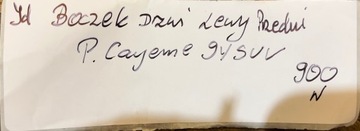 Yd Boczek Drzwi Lewy Przedni
P. Cayenne 9Y SUV
900
N